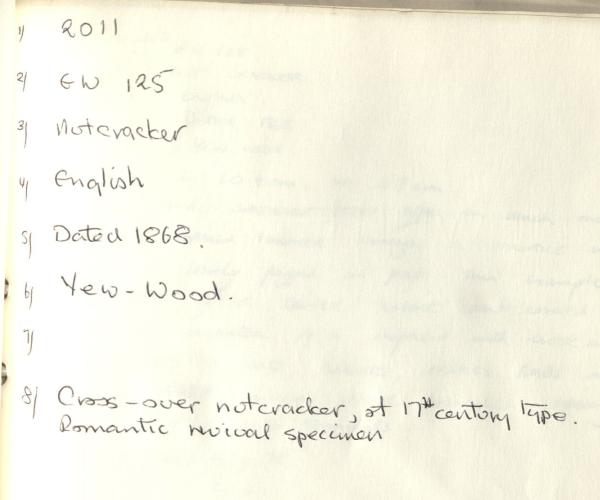 1) 2011
2) EW 125
3) Nutcracker
4) English
5) Dated 1868.
6) Yew-Wood.
7)
8) Cross-over nutcracker, of 17th century type.
Romantic revival specimen